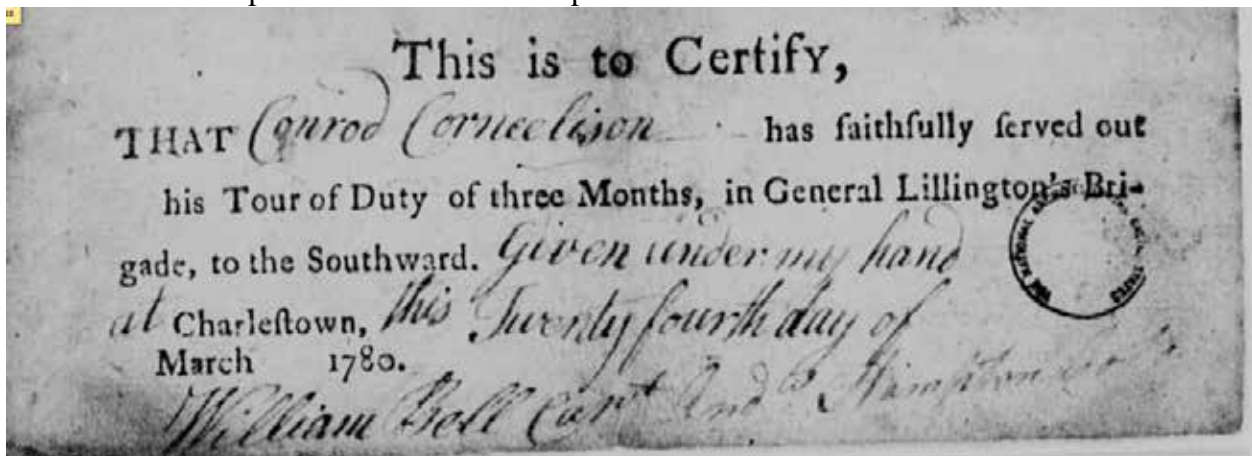 This is to Certify,
THAT Conrod Corneelison has faithfully ſerved out
his Tour of Duty of three Months, in General Lillington's Bri-
gade, to the Southward. Given under my hand
at Charleſtown, this Twenty fourth day of
March 1780.
William Bell Capt And Hampton